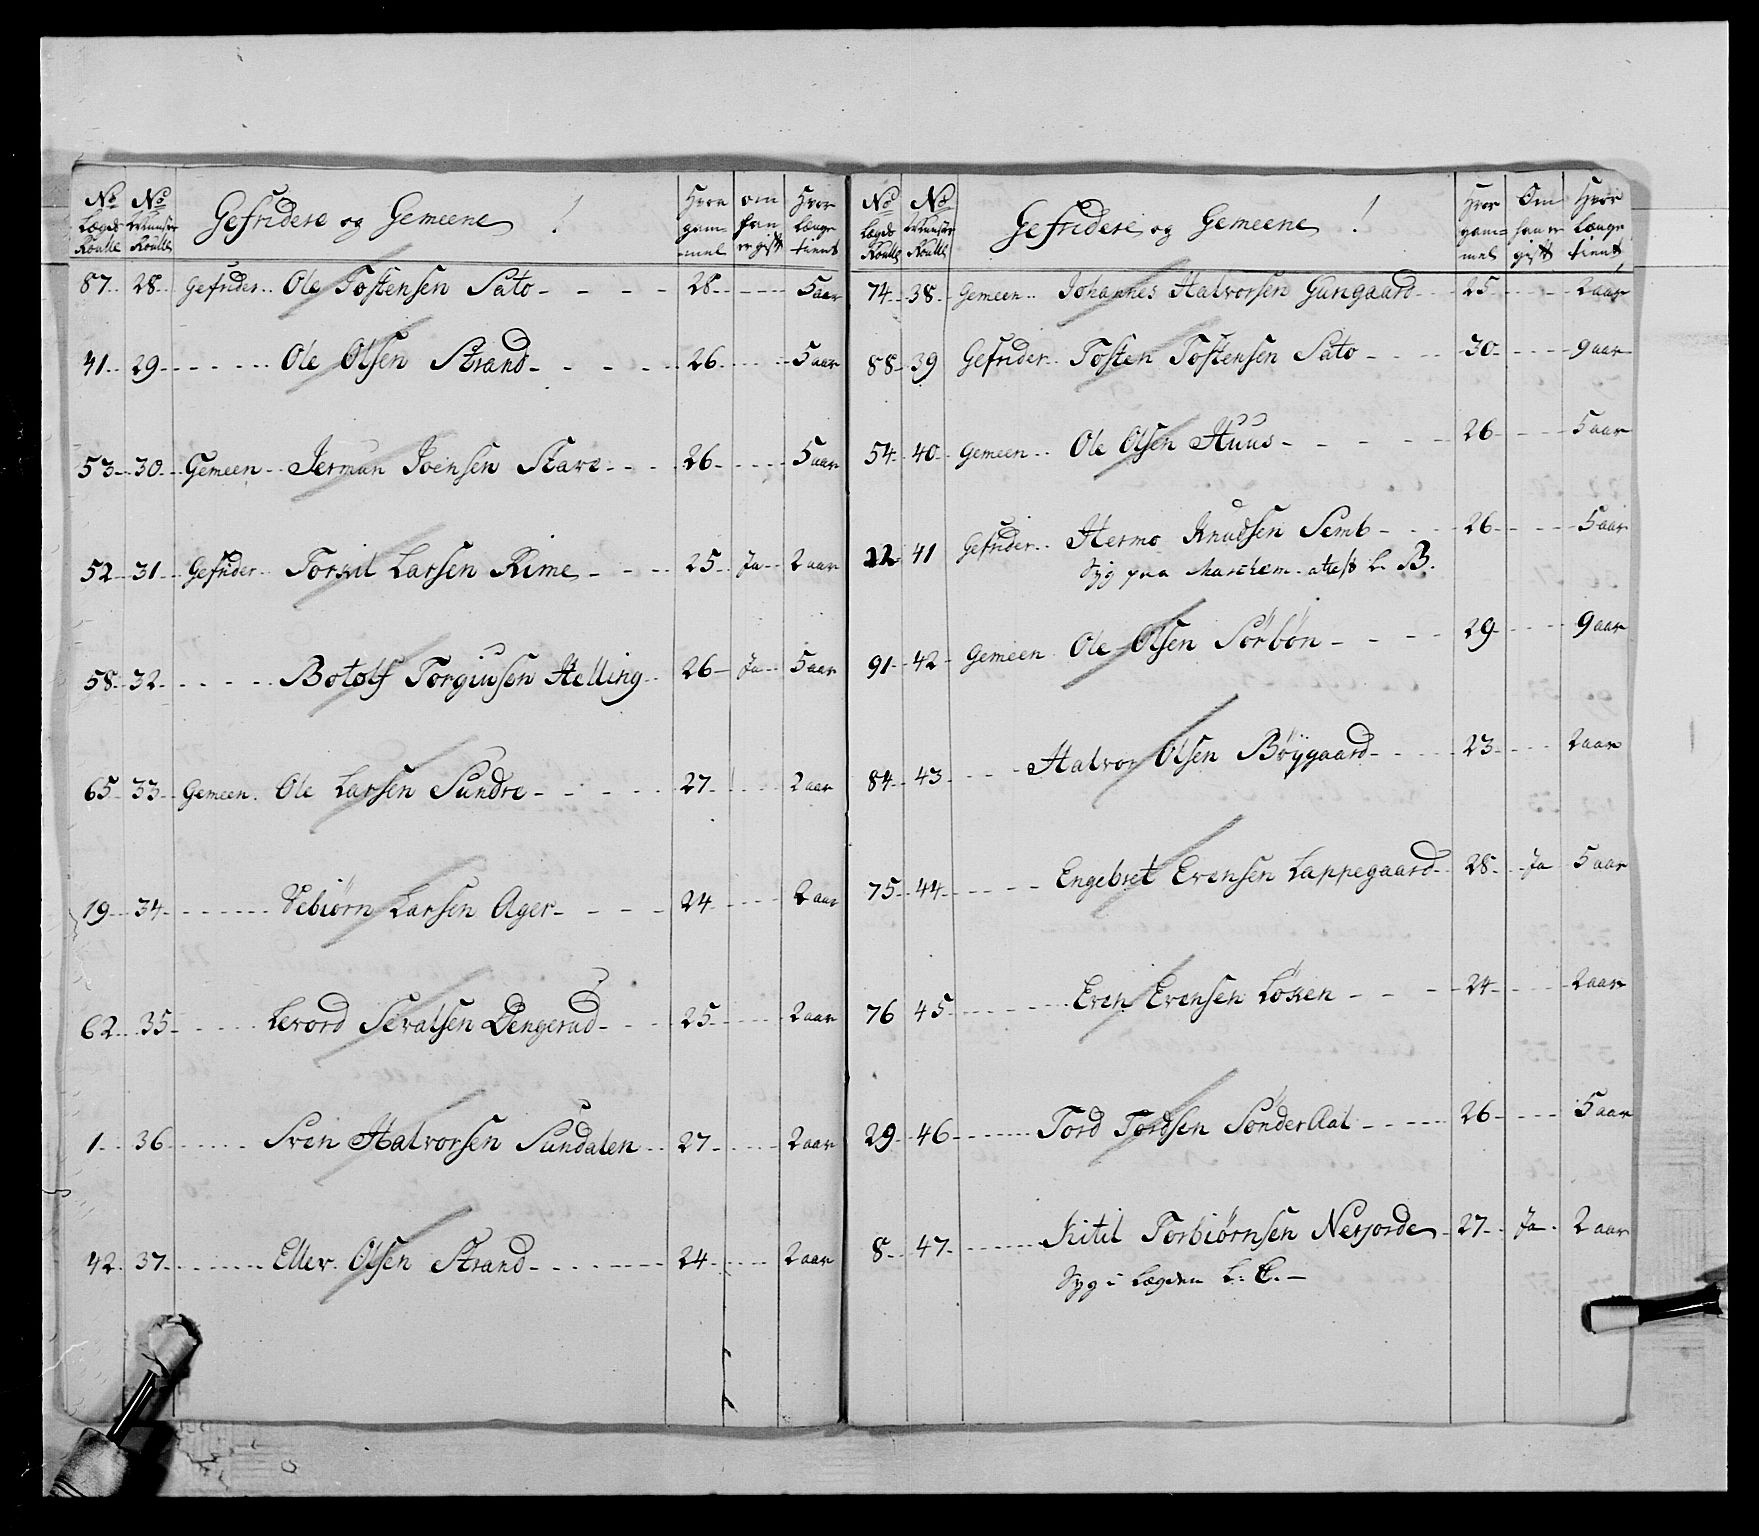 No Lægds Roulle No Munster Roulle Gefridere og Gemeene / Hvor gammel om han er gift Hvor længe tient
87 28 Gefrider Ole Tostensen Sato 28 5 aar
41 29 Ole Olsen Strand 26 5 aar
53 30 Gemeen Jermun Joensen Stave 26 5 aar
52 31 Gefrider Torkil Larsen Rime 25 Ja 2 aar
58 32 Botolf Torgiusen Helling 26 Ja 5 aar
65 33 Gemeen Ole Larsen Sundre 27 2 aar
19 34 Vebiørn Larsen Ager 24 2 aar
62 35 Levord Sevatsen Dengerud 25 2 aar
1 36 Sven Halvorsen Sundalen 27 2 aar
42 37 Ellev Olsen Strand 24 2 aar
No Lægds Roulle No Munster Roulle Gefridere og Gemeene / Hvor gammel Om han er gift Hvor Længe tient
74 38 Gemeen Johannes Halvorsen Gungaard 25 2 aar
88 39 Gefrider Tosten Tostensen Sato 30 9 aar
54 40 Gemeen Ole Olsen Huus 26 5 aar
22 41 Gefrider Hermo Knudsen Semb 26 5 aar
Syg paa Marchem attest L. B.
91 42 Gemeen Ole Olsen Sörbön 29 9 aar
84 43 Halvor Olsen Böygaard 23 2 aar
75 44 Engebret Evensen Lappegaard 28 Ja 5 aar
76 45 Even Evensen Löken 24 2 aar
29 46 Tord Tordsen Sönder Aal 26 5 aar
8 47 Kitil Torbiørnsen Nerjorde 27 Ja 2 aar
Syg i Lægden L: C.